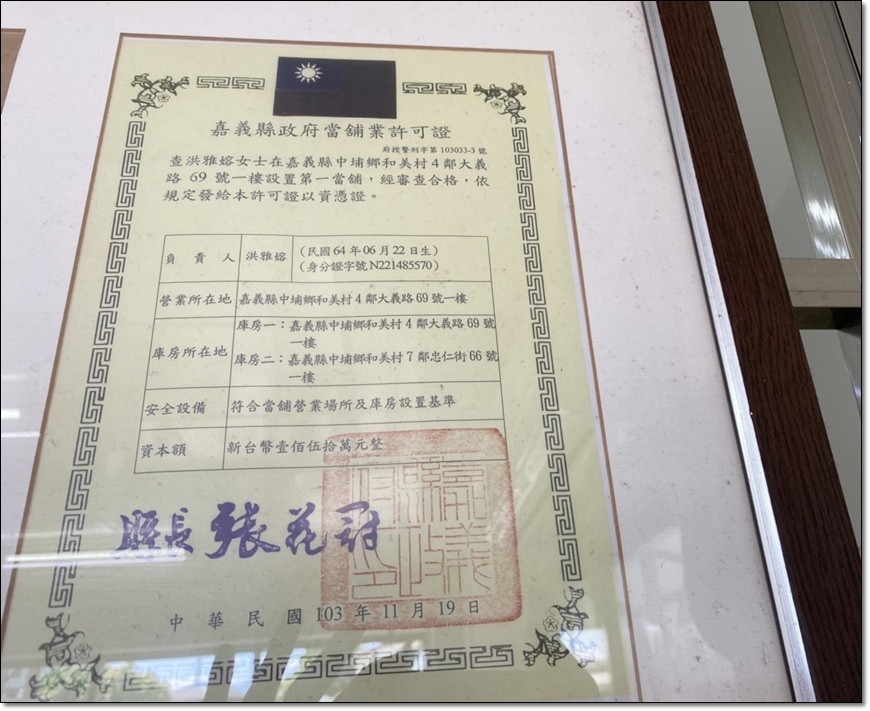 嘉義縣政府當舖業許可證
府授警刑字第 103033-3 號
查洪雅嫆女士在嘉義縣中埔鄉和美村4鄰大義
路 69 號一樓設置第一當舖，經審查合格，依
規定發給本許可證以資憑證。
負責人 洪雅嫆 （民國 64 年 06 月 22 日生）
（身分證字號 N221485570）
營業所在地 嘉義縣中埔鄉和美村4鄰大義路69號一樓
庫房所在地 庫房一：嘉義縣中埔鄉和美村4鄰大義路69號
一樓
庫房二：嘉義縣中埔鄉和美村7鄰忠仁街66號
一樓
安全設備 符合當舖營業場所及庫房設置基準
資本額 新台幣壹佰伍拾萬元整
縣長 張花冠
嘉義縣政府印
中華民國 103 年 11 月 19 日